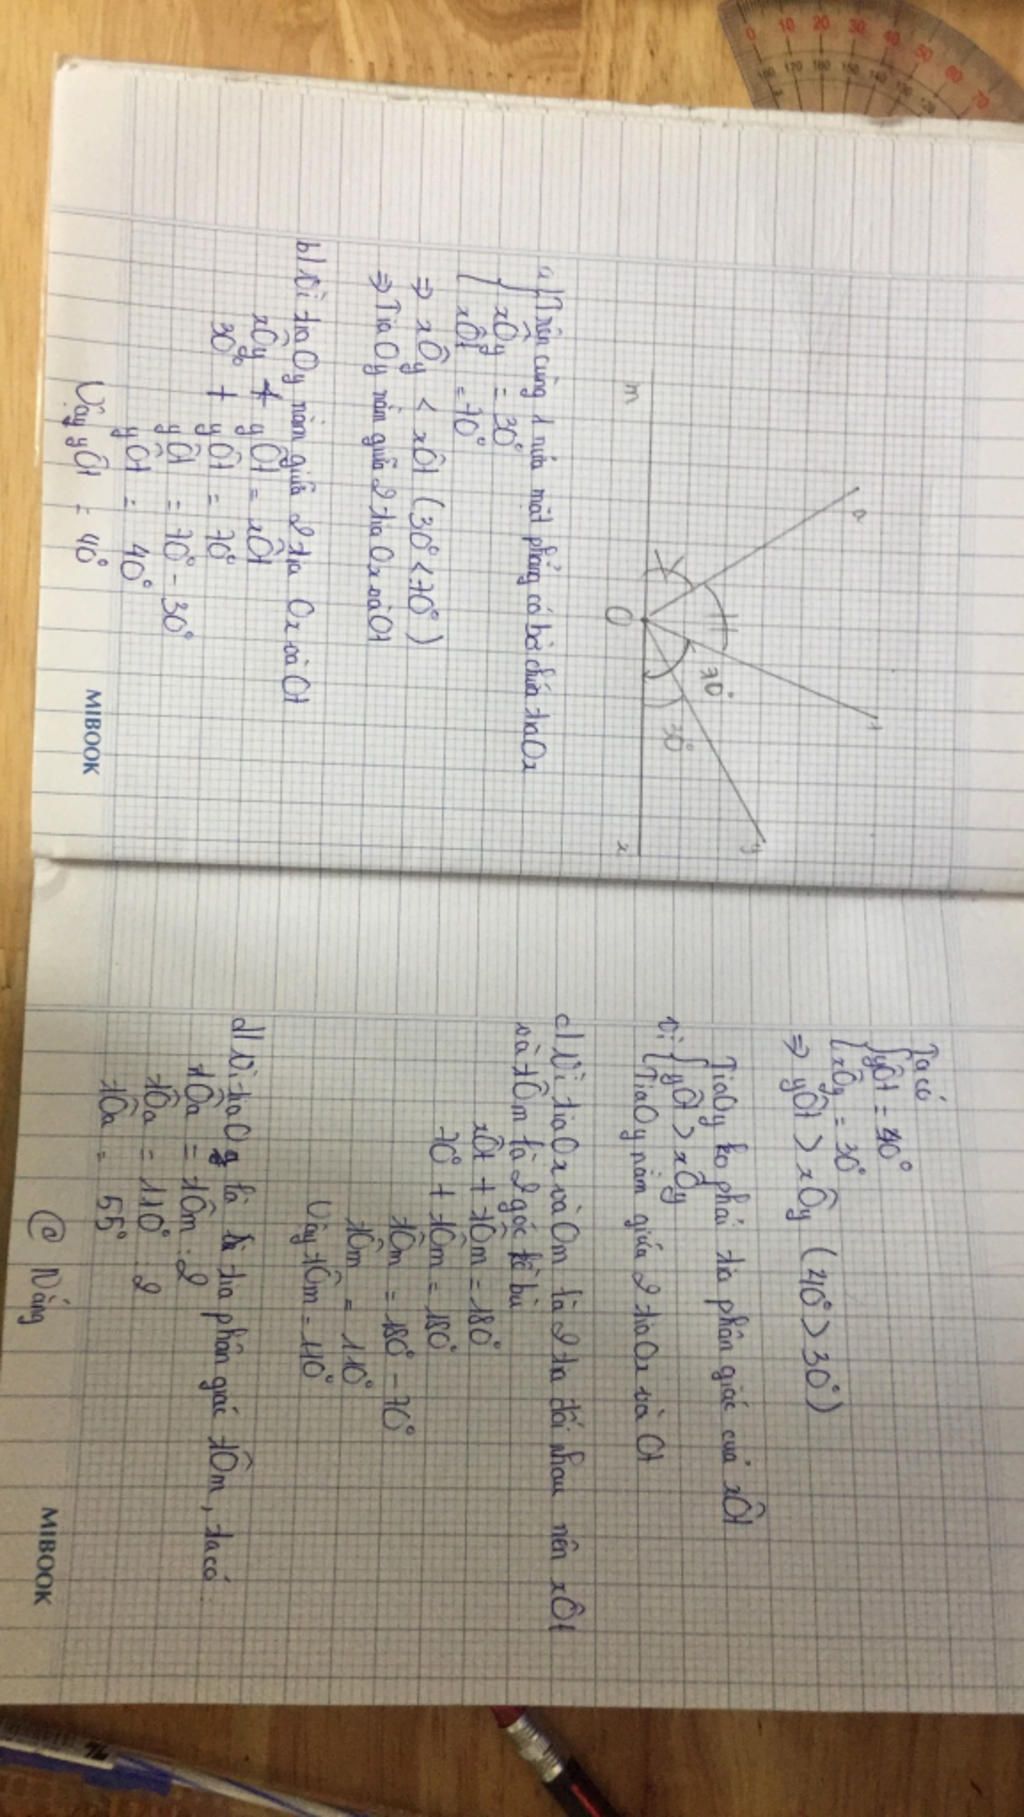 a
t
y
70°
30°
m
O
x
a) Trên cùng 1 nửa mặt phẳng có bờ chứa tia Ox
xÔy = 30°
xÔt = 70°
⇒ xÔy < xÔt (30° < 70°)
⇒ Tia Oy nằm giữa 2 tia Ox và Ot
b) Vì tia Oy nằm giữa 2 tia Ox và Ot
xÔy + yÔt = xÔt
30° + yÔt = 70°
yÔt = 70° - 30°
yÔt = 40°
Vậy yÔt = 40°
MIBOOK
Ta có
yÔt = 40°
xÔy = 30°
⇒ yÔt > xÔy (40° > 30°)
Tia Oy ko phải tia phân giác của xÔt
Vì yÔt > xÔy
Tia Oy nằm giữa 2 tia Ox và Ot
c) Vì tia Ox và Om là 2 tia đối nhau nên xÔt
và tÔm là 2 góc kề bù
xÔt + tÔm = 180°
70° + tÔm = 180°
tÔm = 180° - 70°
tÔm = 110°
Vậy tÔm = 110°
d) Vì tia Oa là tia phân giác tÔm, ta có:
tÔa = tÔm : 2
tÔa = 110° : 2
tÔa = 55°
@ Nắng
MIBOOK
0 10 20 30 40 50 60 70
180 170 160 150 140 130 120